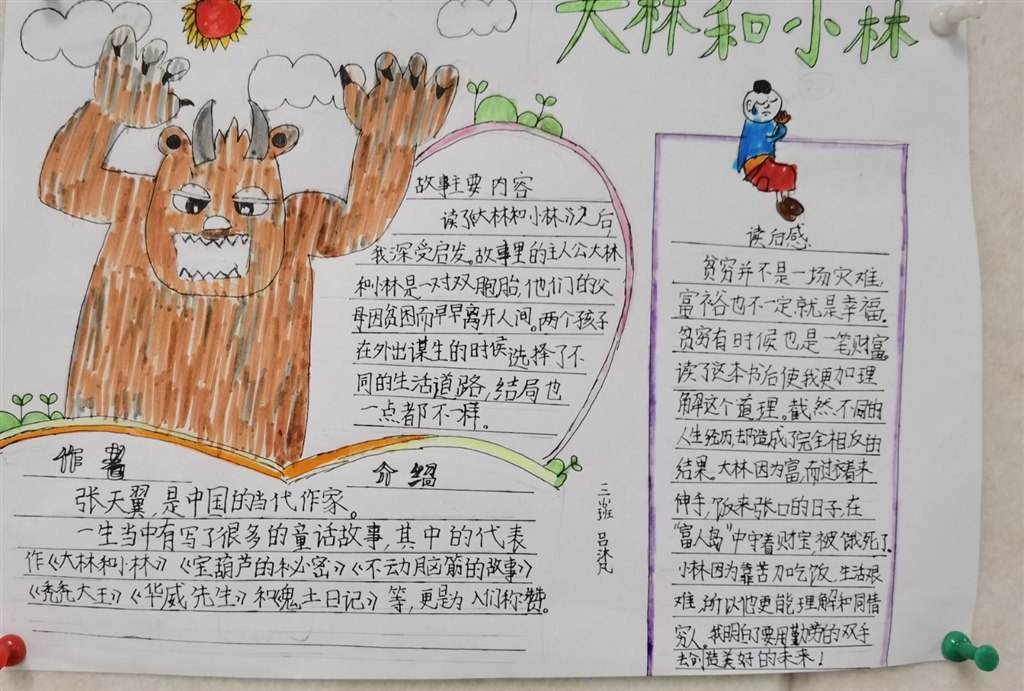 大林和小林
故事主要内容
读了《大林和小林》之后,
我深受启发。故事里的主人公大林
和小林是一对双胞胎,他们的父
母因贫困而早早离开人间。两个孩子
在外出谋生的时候选择了不
同的生活道路,结局也
一点都不一样。
读后感
贫穷并不是一场灾难,
富裕也不一定就是幸福。
贫穷有时候也是一笔财富。
读了这本书后使我更加理
解这个道理。截然不同的
人生经历却造成了完全相反的
结果。大林因为富,而过着来
伸手,饭来张口的日子,在
“富人岛”中守着财宝被饿死了。
小林因为靠苦力吃饭,生活艰
难,所以他更能理解和同情
穷人。我明白了要用勤劳的双手
去创造美好的未来!
作者 介绍
张天翼,是中国的当代作家。
一生当中有写了很多的童话故事,其中的代表
作《大林和小林》《宝葫芦的秘密》《不动脑筋的故事》
《秃秃大王》《华威先生》和《鬼土日记》等,更是为人们称赞。
三班 吕沐凡